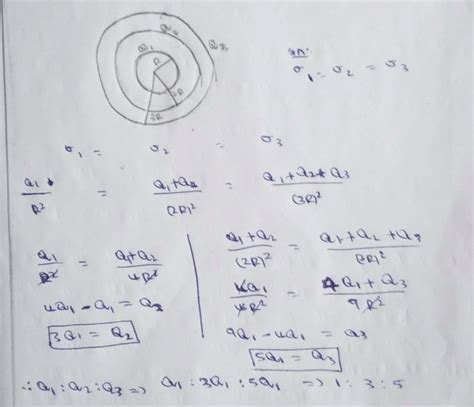 Q1
Q2
Q3
R
2R
3R
gn:
σ1 = σ2 = σ3
σ1 = σ2 = σ3
Q1/R² = Q1+Q2/(2R)² = Q1+Q2+Q3/(3R)²
Q1/R² = Q1+Q2/4R²
4Q1 - Q1 = Q2
3Q1 = Q2
Q1+Q2/(2R)² = Q1+Q2+Q3/(3R)²
4Q1/4R² = 4Q1+Q3/9R²
9Q1 - 4Q1 = Q3
5Q1 = Q3
∴ Q1 : Q2 : Q3 => Q1 : 3Q1 : 5Q1 => 1 : 3 : 5